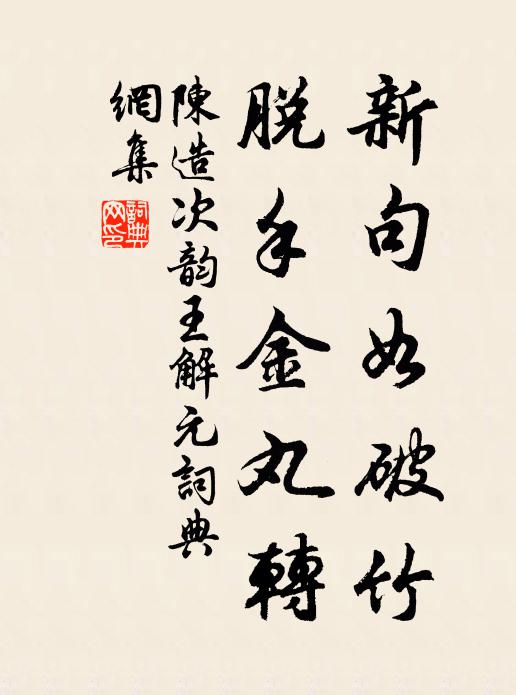 新句如破竹
脱手金丸轉
陳造次韵王解元詞典
網集
詞典網印